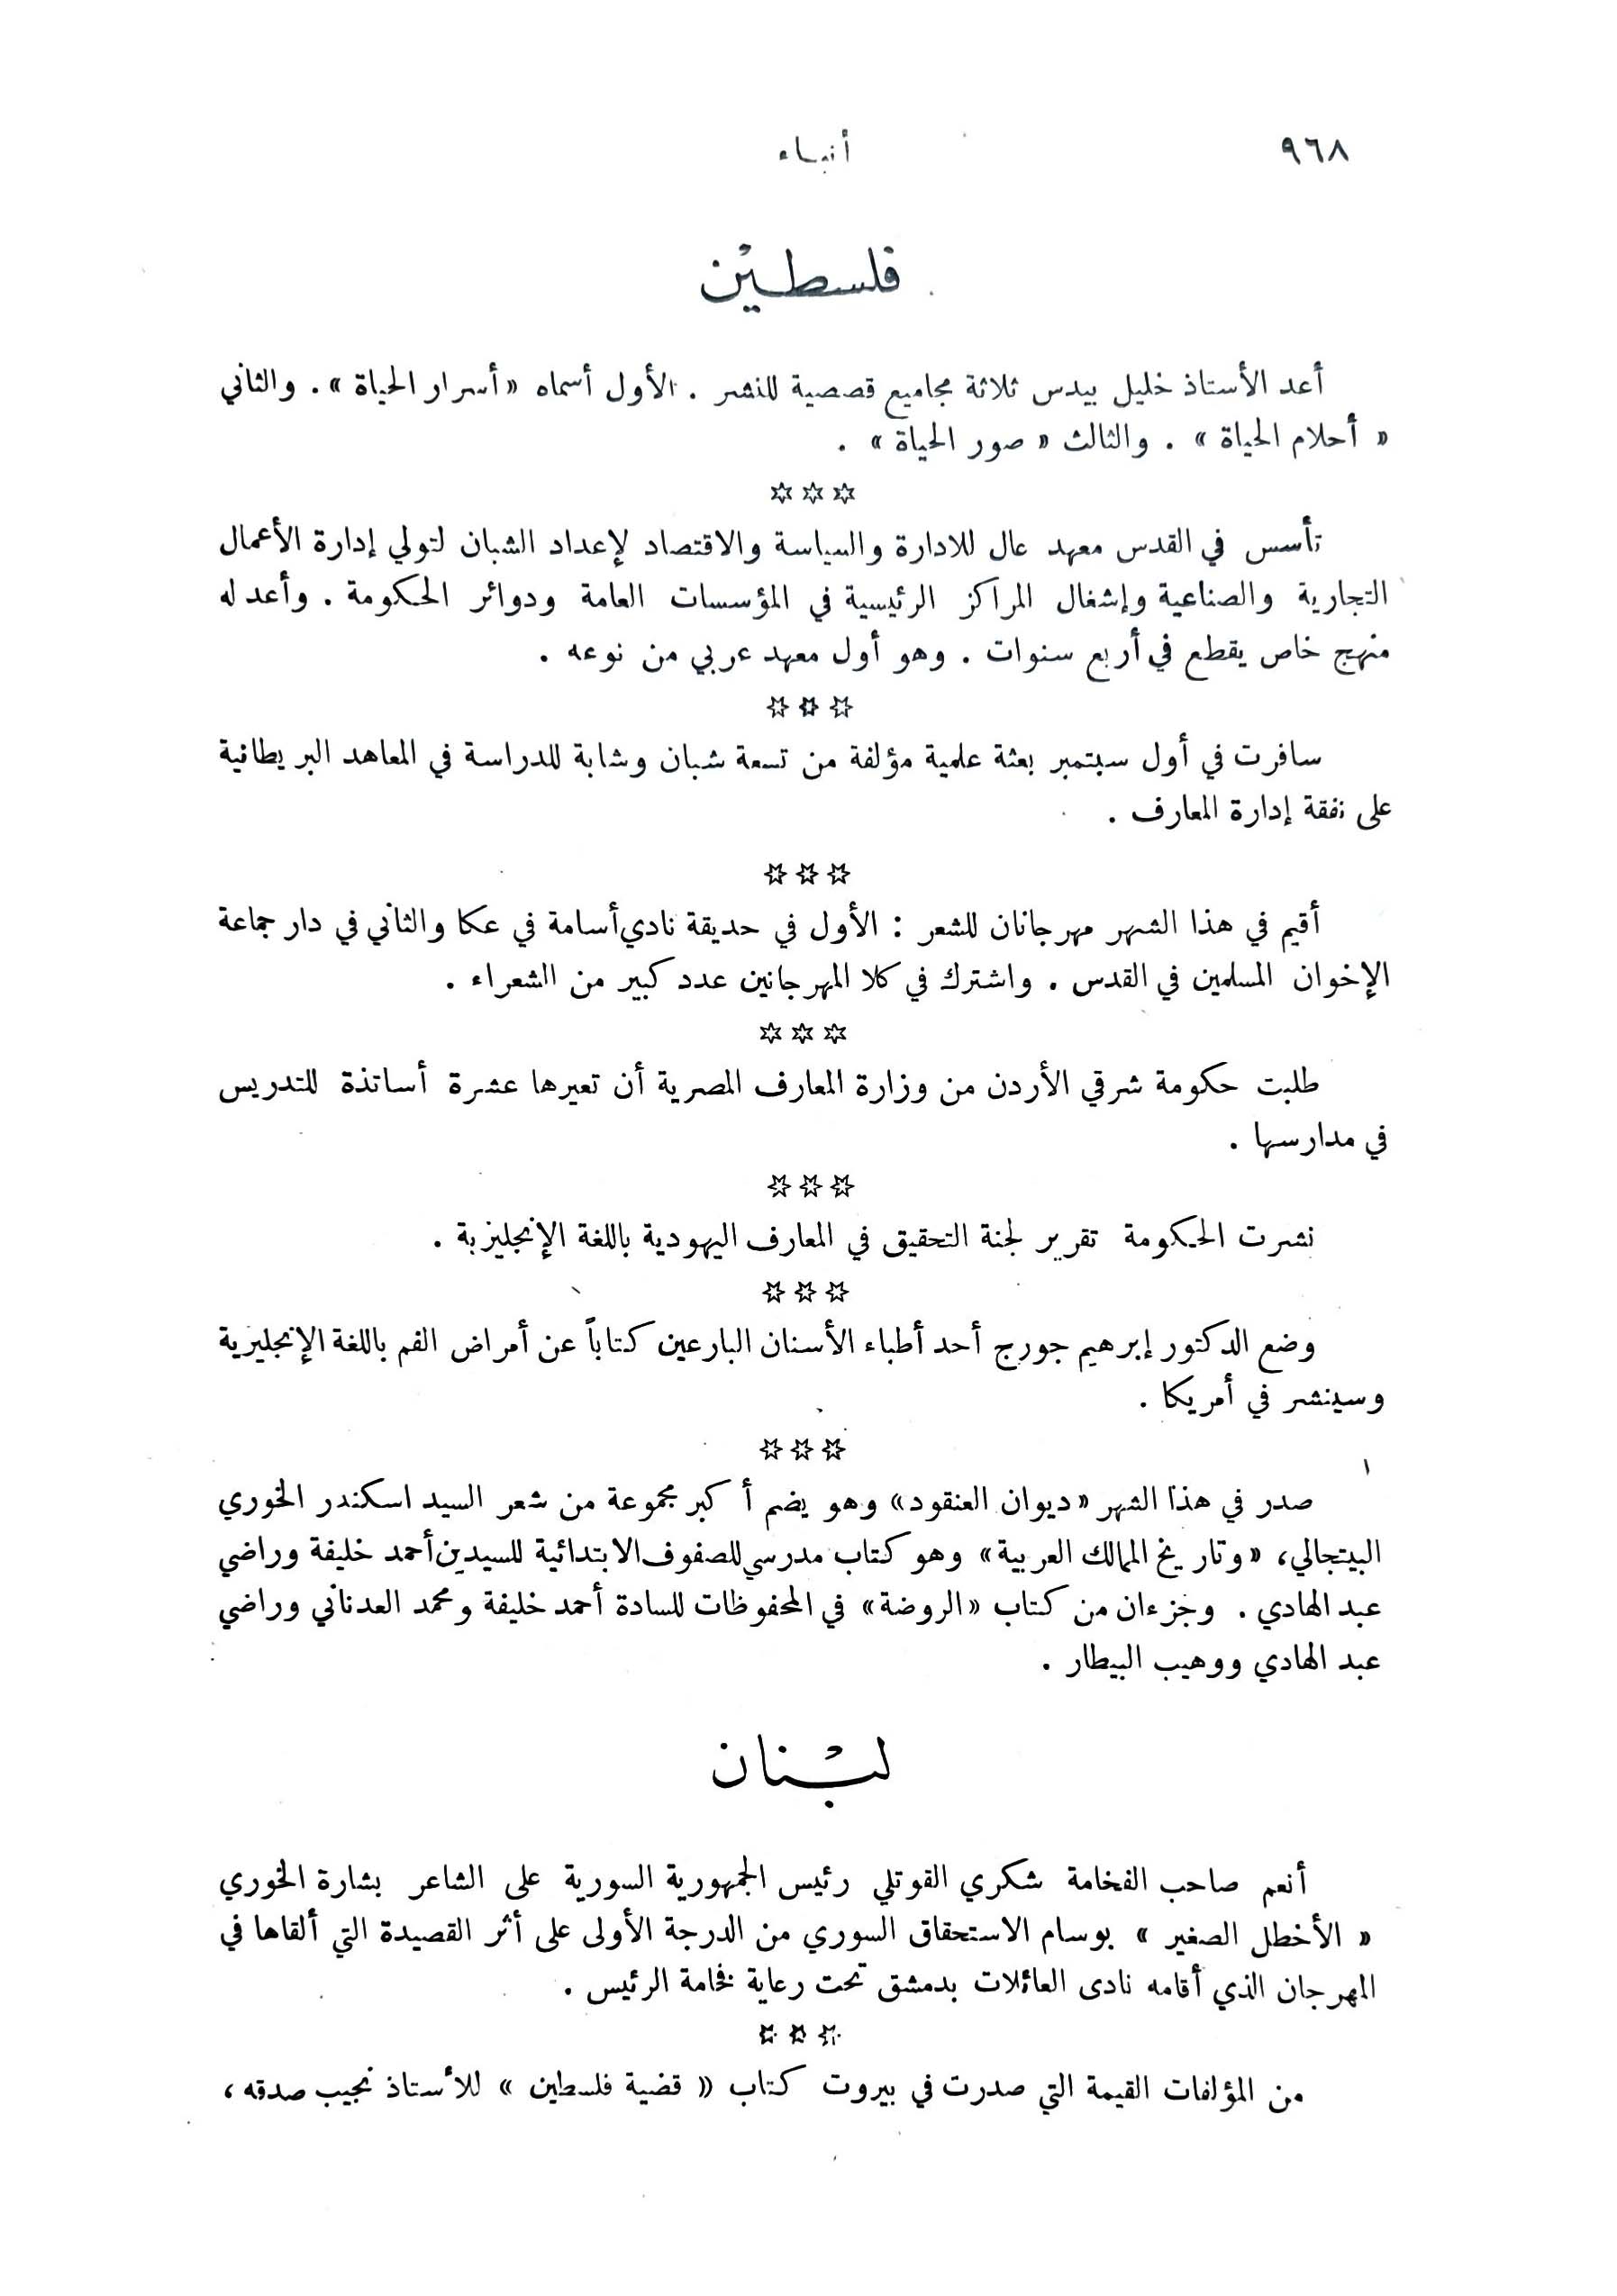 ٩٦٨
أنباء
فلسطين
أعد الأستاذ خليل بيدس ثلاثة مجاميع قصصية للنشر . الأول أسماه « أسرار الحياة » . والثاني
« أحلام الحياة » . والثالث « صور الحياة » .
✡ ✡ ✡
تأسس في القدس معهد عال للادارة والسياسة والاقتصاد لإعداد الشبان لتولي إدارة الأعمال
التجارية والصناعية وإشغال المراكز الرئيسية في المؤسسات العامة ودوائر الحكومة . وأعد له
منهج خاص يقطع في أربع سنوات . وهو أول معهد عربي من نوعه .
✡ ✡ ✡
سافرت في أول سبتمبر بعثة علمية مؤلفة من تسعة شبان وشابة للدراسة في المعاهد البريطانية
على نفقة إدارة المعارف .
✡ ✡ ✡
أقيم في هذا الشهر مهرجانان للشعر : الأول في حديقة نادي أسامة في عكا والثاني في دار جماعة
الإخوان المسلمين في القدس . واشترك في كلا المهرجانين عدد كبير من الشعراء .
✡ ✡ ✡
طلبت حكومة شرقي الأردن من وزارة المعارف المصرية أن تعيرها عشرة أساتذة للتدريس
في مدارسها .
✡ ✡ ✡
نشرت الحكومة تقرير لجنة التحقيق في المعارف اليهودية باللغة الإنجليزية .
✡ ✡ ✡
وضع الدكتور إبرهيم جورج أحد أطباء الأسنان البارعين كتاباً عن أمراض الفم باللغة الإنجليزية
وسينشر في أمريكا .
✡ ✡ ✡
صدر في هذا الشهر « ديوان العنقود » وهو يضم أكبر مجموعة من شعر السيد اسكندر الخوري
البيتجالي، « وتاريخ الممالك العربية » وهو كتاب مدرسي للصفوف الابتدائية للسيدين أحمد خليفة وراضي
عبد الهادي . وجزءان من كتاب « الروضة » في المحفوظات للسادة أحمد خليفة ومحمد العدناني وراضي
عبد الهادي ووهيب البيطار .
لبنان
أنعم صاحب الفخامة شكري القوتلي رئيس الجمهورية السورية على الشاعر بشارة الخوري
« الأخطل الصغير » بوسام الاستحقاق السوري من الدرجة الأولى على أثر القصيدة التي ألقاها في
المهرجان الذي أقامه نادى العائلات بدمشق تحت رعاية فخامة الرئيس .
✡ ✡ ✡
من المؤلفات القيمة التي صدرت في بيروت كتاب « قضية فلسطين » للأستاذ نجيب صدقه ،